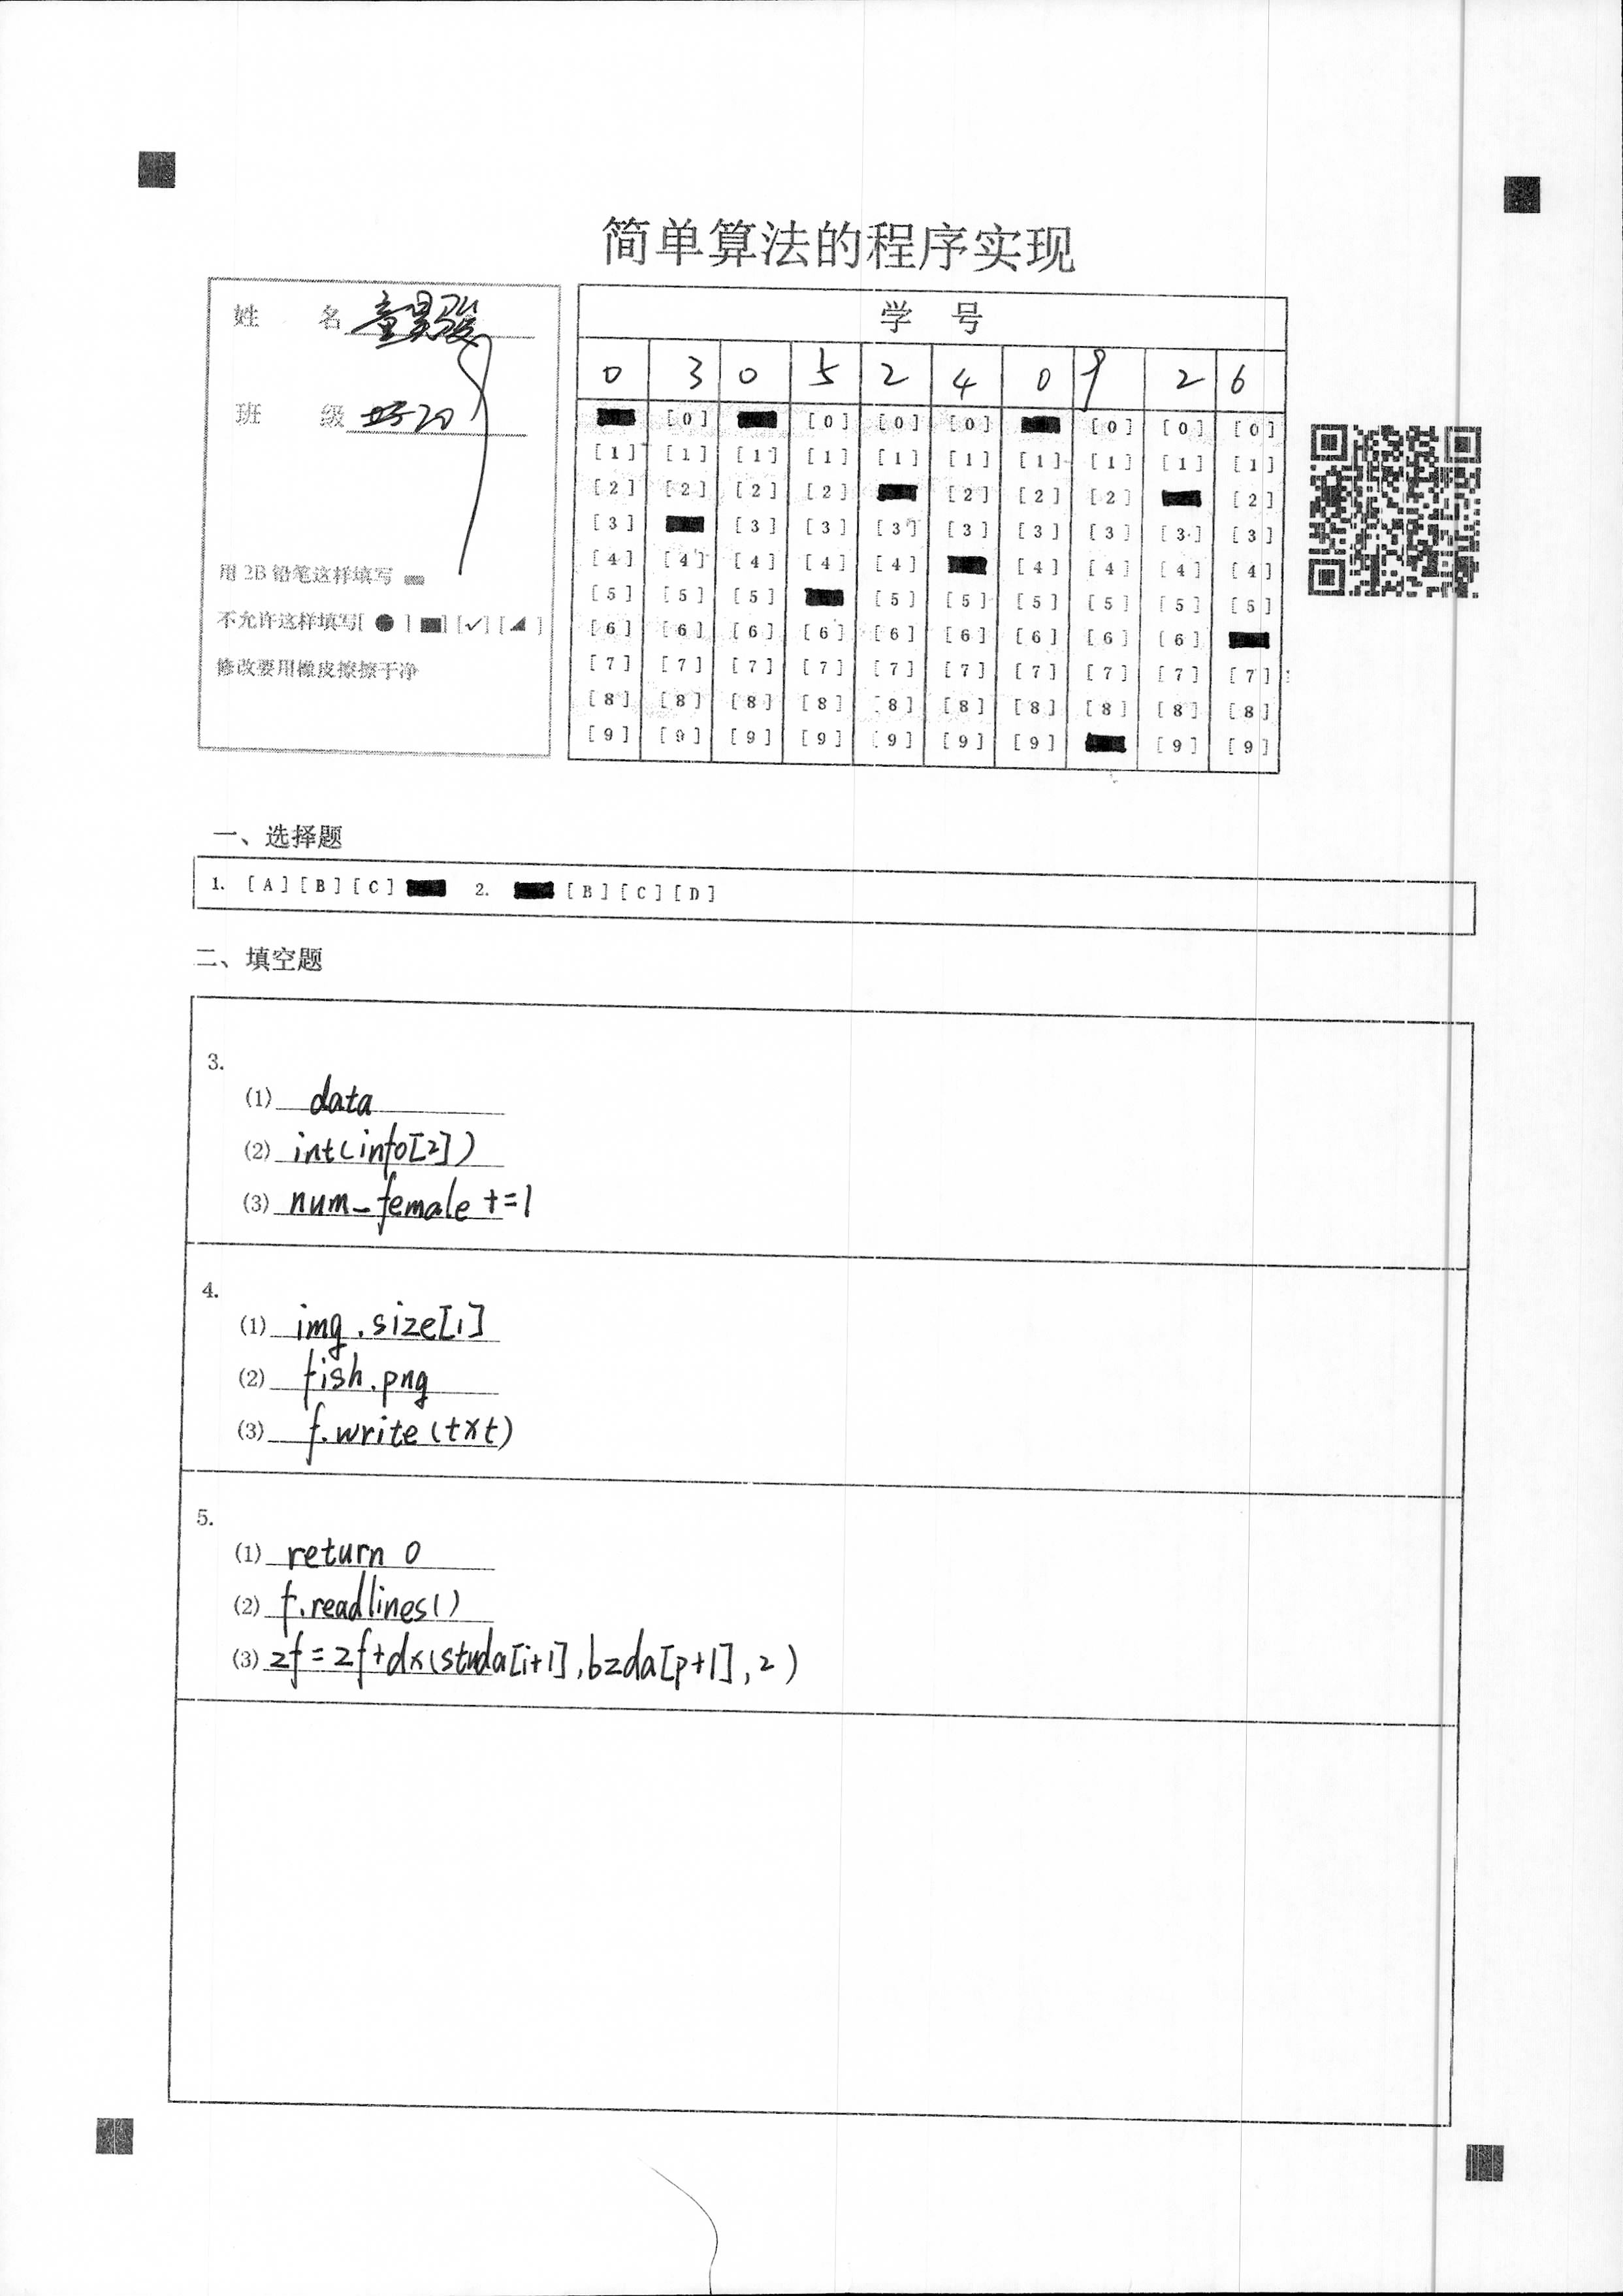 简单算法的程序实现
姓 名 童昊骏
班 级
用 2B 铅笔这样填写
不允许这样填写[ ● ] [■] [✓] [◢ ]
修改要用橡皮擦擦干净
学 号
0 3 0 5 2 4 0 9 2 6
[0] [0] [0] [0] [0] [0] [0]
[1] [1] [1] [1] [1] [1] [1] [1] [1] [1]
[2] [2] [2] [2] [2] [2] [2] [2]
[3] [3] [3] [3] [3] [3] [3] [3] [3]
[4] [4] [4] [4] [4] [4] [4] [4] [4]
[5] [5] [5] [5] [5] [5] [5] [5] [5]
[6] [6] [6] [6] [6] [6] [6] [6] [6]
[7] [7] [7] [7] [7] [7] [7] [7] [7] [7]
[8] [8] [8] [8] [8] [8] [8] [8] [8] [8]
[9] [9] [9] [9] [9] [9] [9] [9] [9]
一、选择题
1. [A] [B] [C] 2. [B] [C] [D]
二、填空题
3.
(1) data
(2) int(info[2])
(3) num_female +=1
4.
(1) img.size[1]
(2) fish.png
(3) f.write(txt)
5.
(1) return 0
(2) f.readlines()
(3) zf=zf+dx(studa[i+1],bzda[p+1],2)